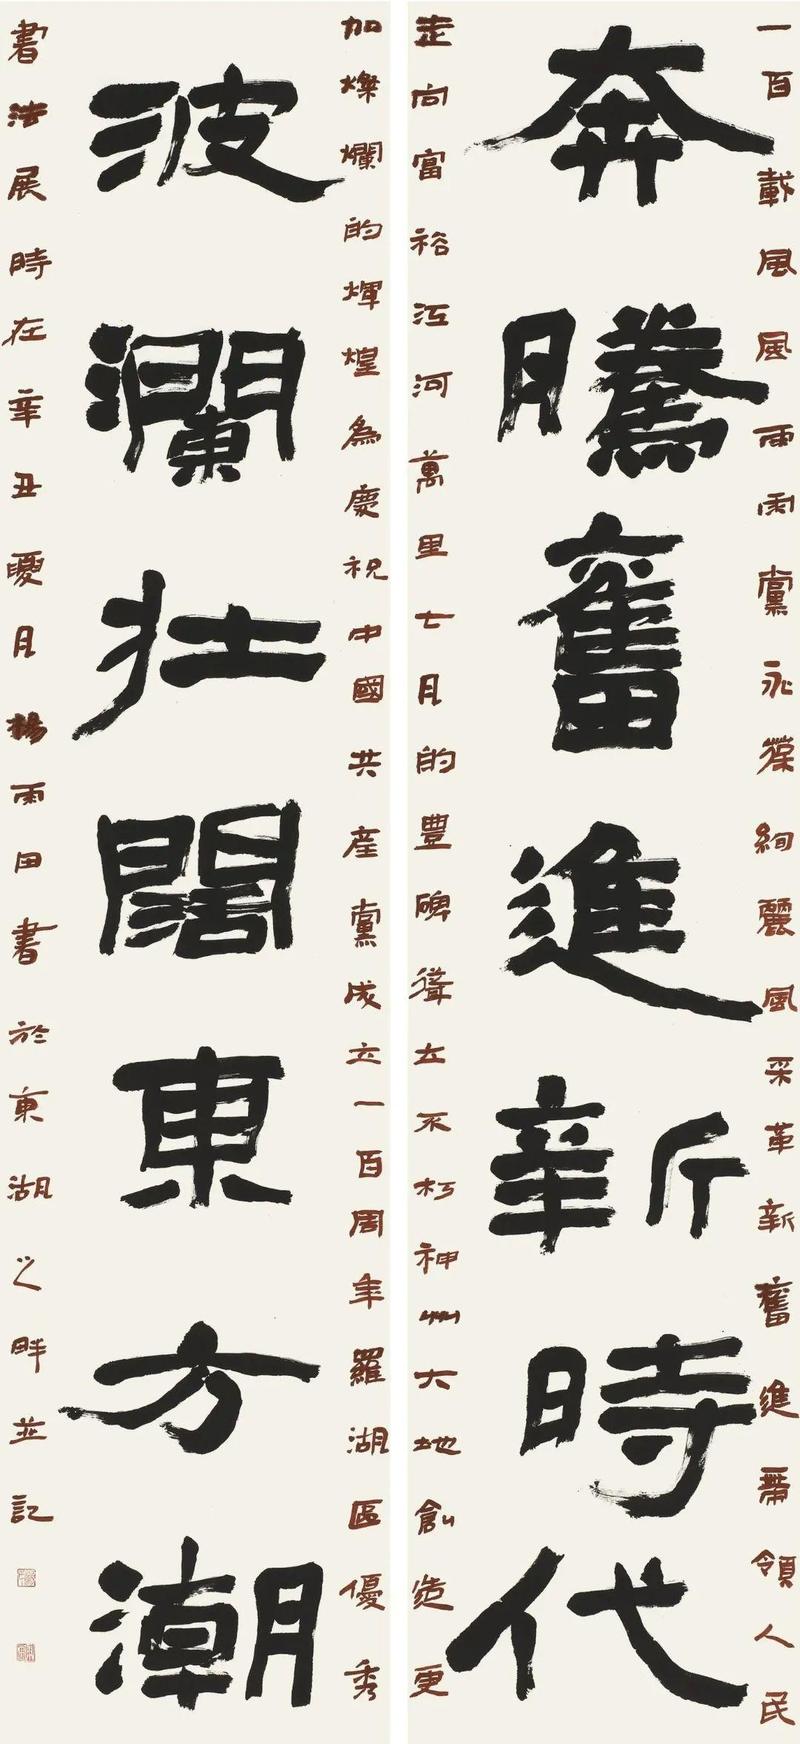 一百載風風雨雨黨永葆絢麗風采革新奮進帶領人民
奔騰奮進新時代
走向富裕江河萬里七月的豐碑聳立不朽神州大地創造更
加燦爛的輝煌為慶祝中國共產黨成立一百周年羅湖區優秀
波瀾壯闊東方潮
書法展時在辛丑夏月楊雨田書於東湖之畔並記